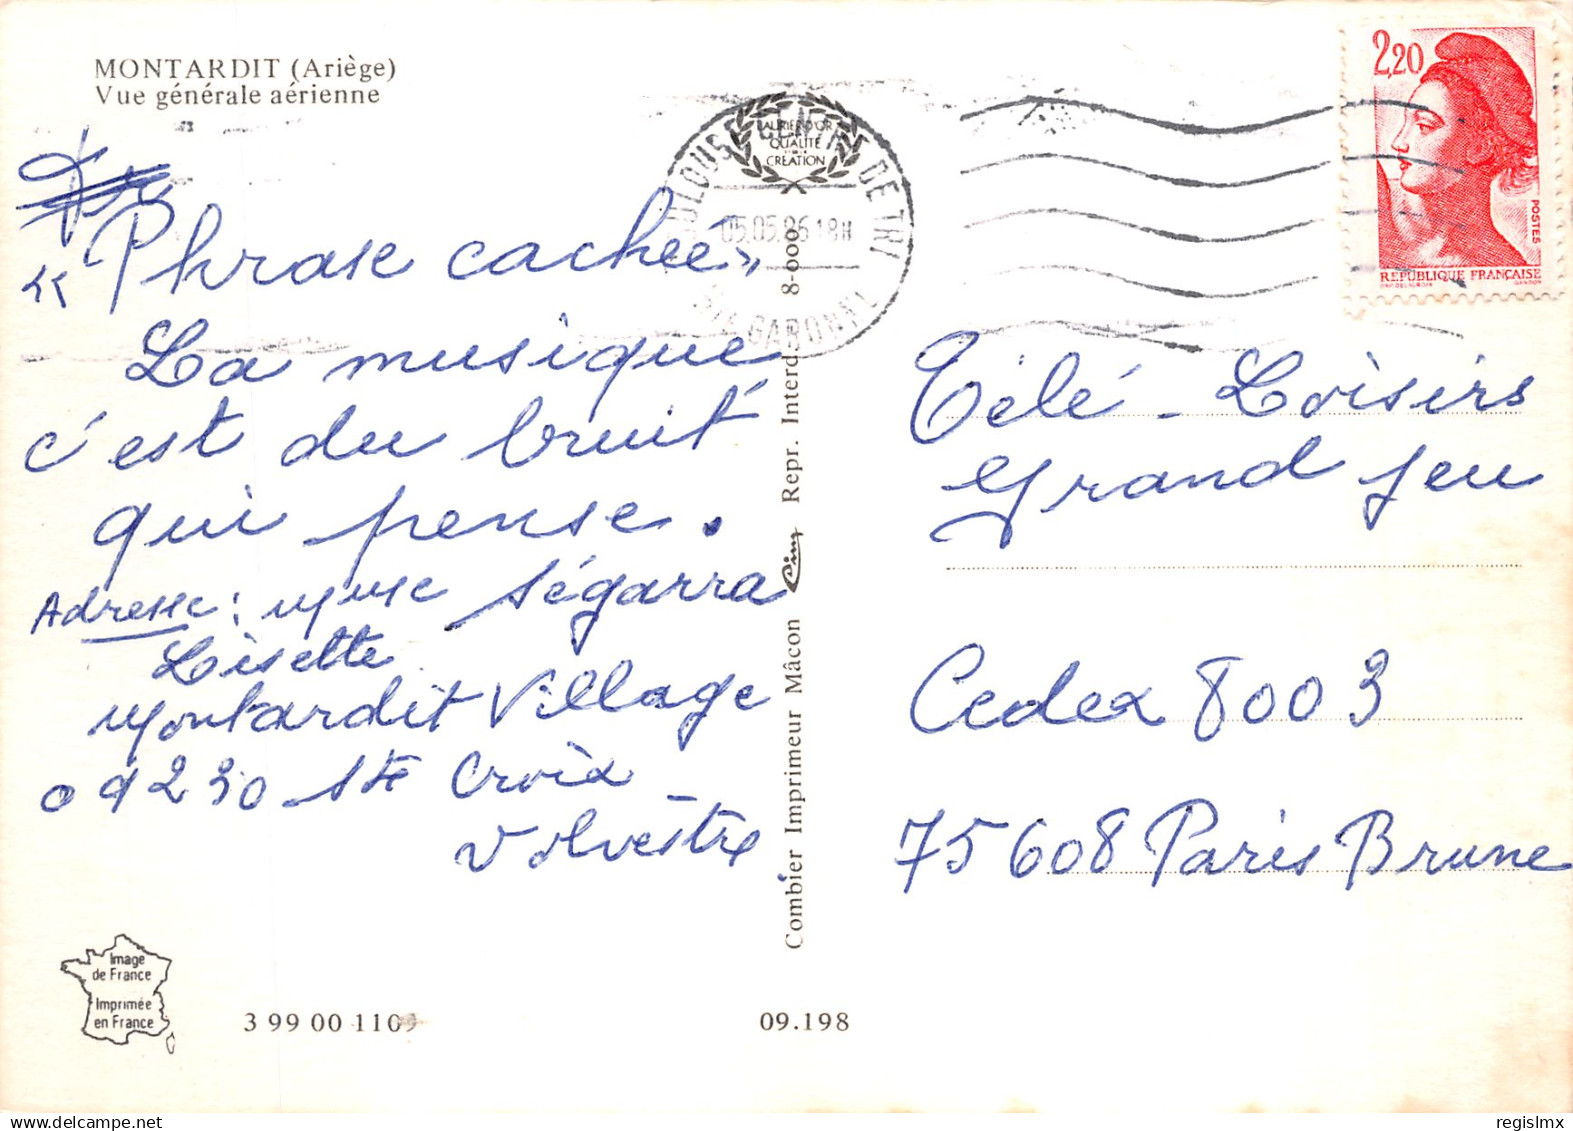 MONTARDIT (Ariège)
Vue générale aérienne
« Phrase cachée »
La musique
c'est du bruit
qui pense.
Adresse : Mme Ségarra
Lisette
Montardit Village
09230 Ste Croix
Volvestre
Image
de France
Imprimée
en France
3 99 00 1109
09.198
Combier Imprimeur Mâcon Cim Repr. Interd. 8-000
LAURIER D'OR
QUALITÉ
CRÉATION
TOULOUSE CENTRE DE TRI
05.05.86 18H
HTE GARONNE
2,20
POSTES
REPUBLIQUE FRANÇAISE
GANDON
Télé-Loisirs
Grand Jeu
Cedex 8003
75608 Paris Brune
regislmx